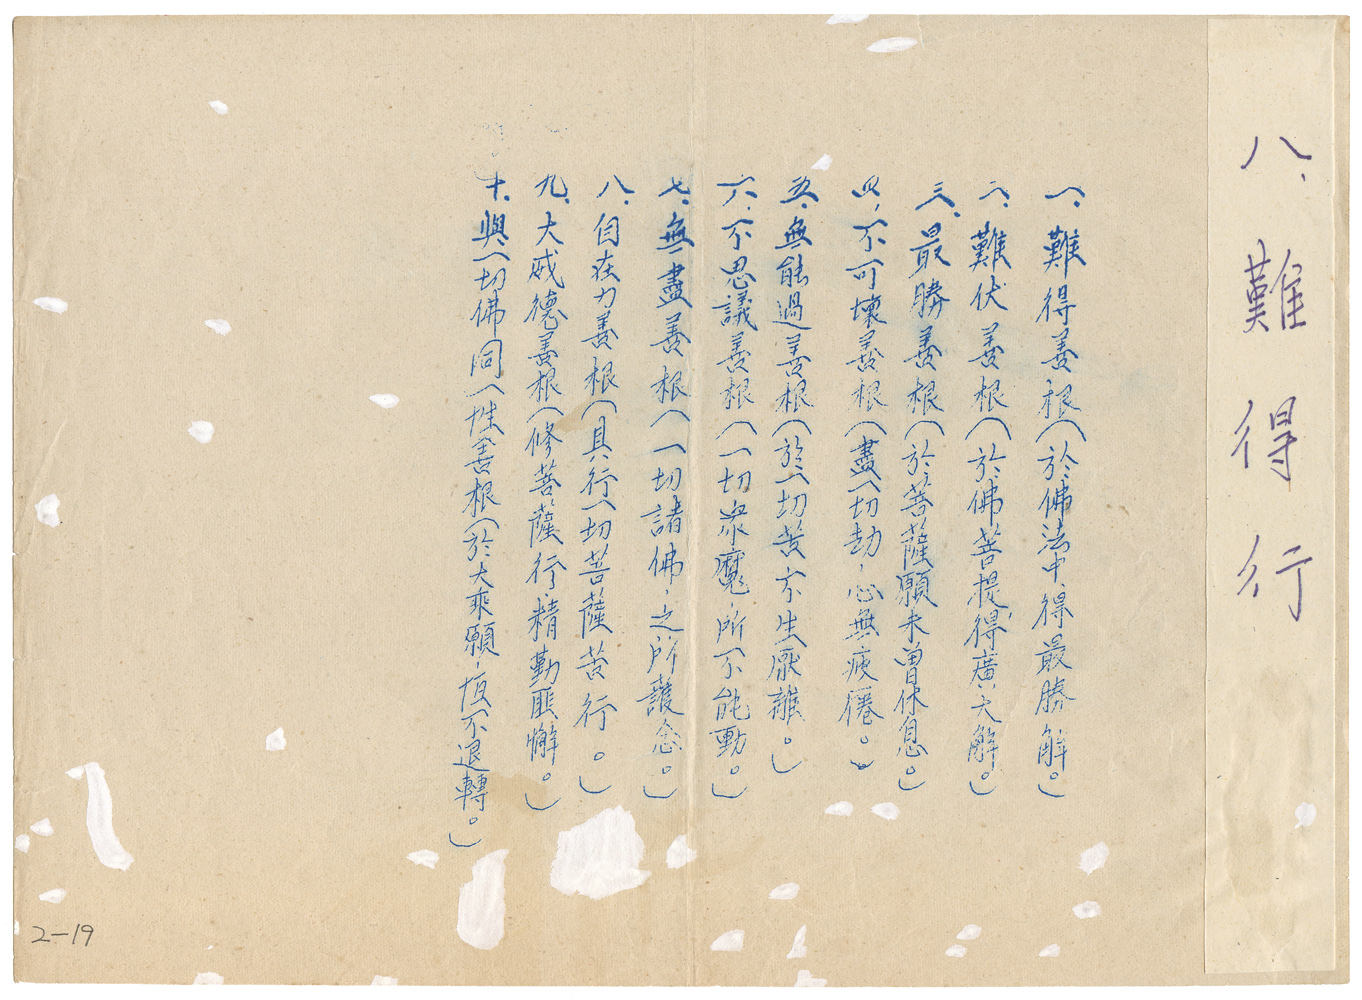 八、難得行
一、難得善根（於佛法中、得最勝解。）
二、難伏善根（於佛菩提、得廣大解。）
三、最勝善根（於菩薩願未曾休息。）
四、不可壞善根（盡一切劫，心無疲倦。）
五、無能過善根（於一切苦不生厭離。）
六、不思議善根（一切眾魔，所不能動。）
七、無盡善根（一切諸佛，之所護念。）
八、自在力善根（具行一切菩薩苦行。）
九、大威德善根（修菩薩行，精勤匪懈。）
十、與一切佛同一性善根（於大乘願，恆不退轉。）
2-19